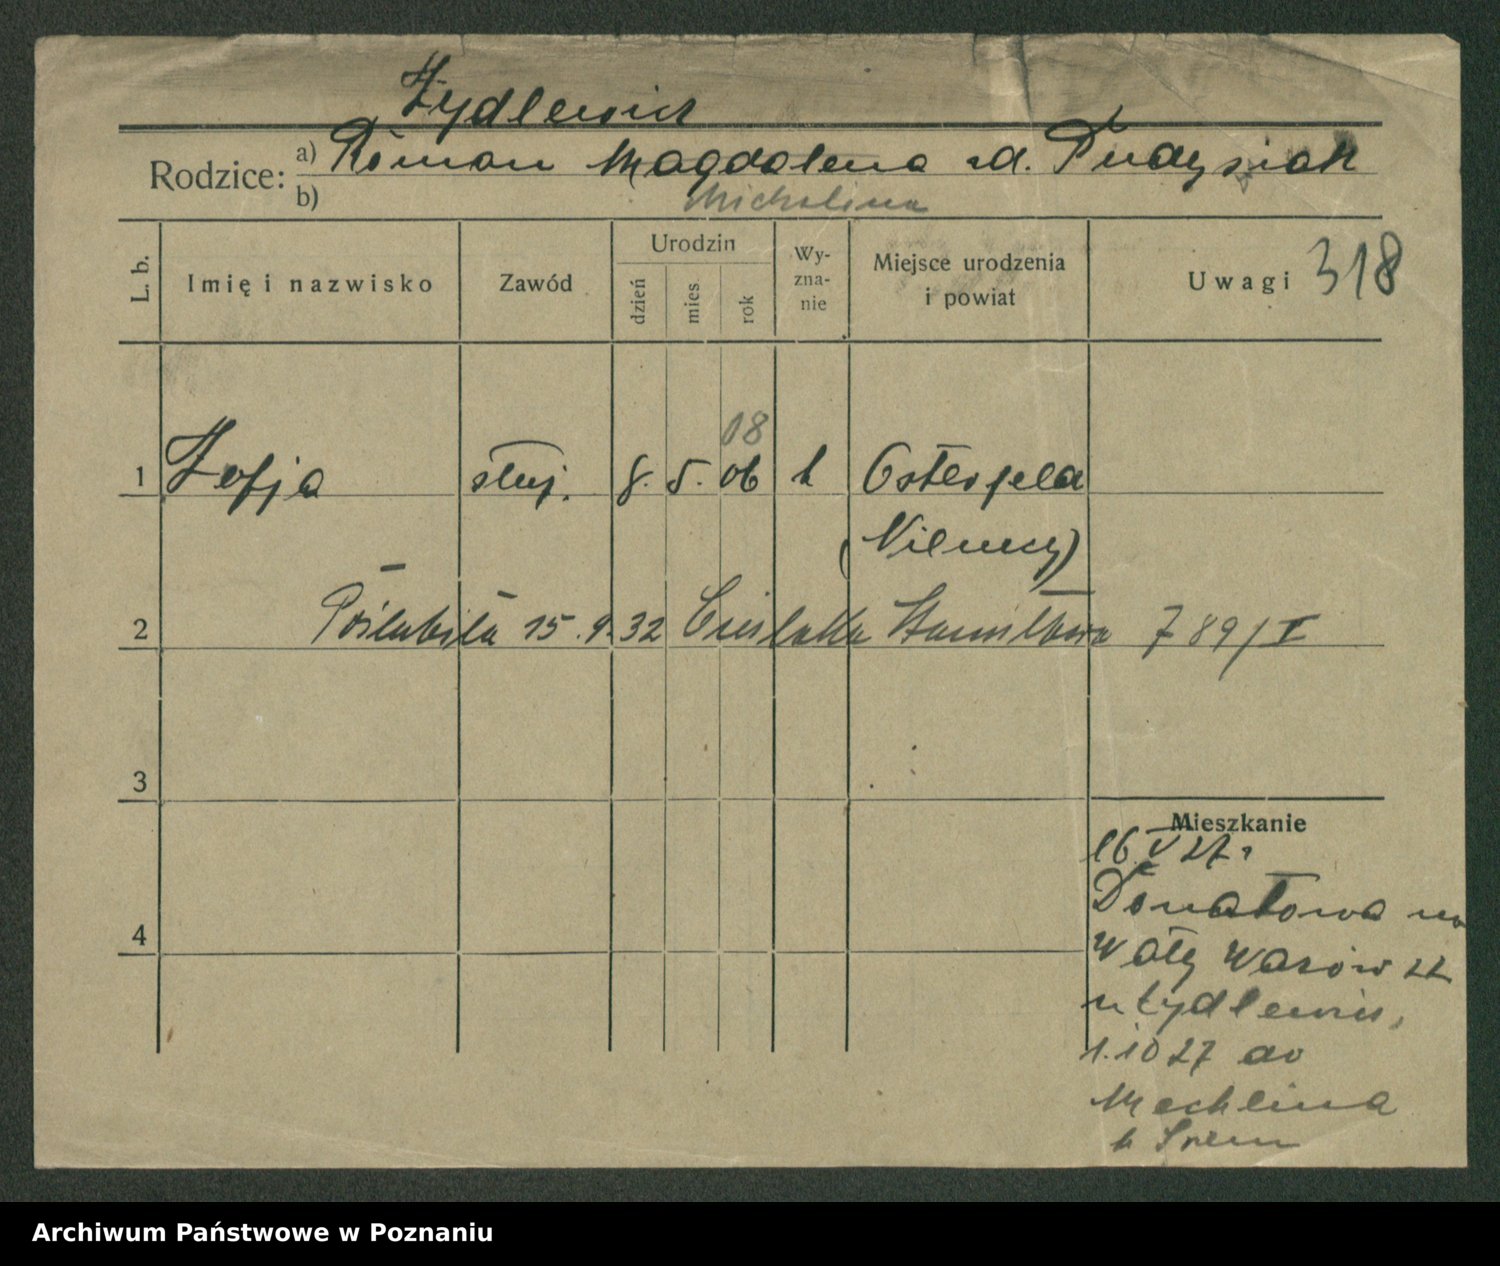 Żydlewicz
Rodzice: a) Roman Magdalena zd. Pudysiak
b) Michalina
L. b. Imię i nazwisko Zawód Urodzin dzień mies. rok Wy-zna-nie Miejsce urodzenia i powiat Uwagi 318
18
1 Zofja służ. 8. 5. 06 k Osterfeld
(Niemcy)
2 Poślubiła 15.9.32 Cieślaka Stanisława 789/I
3
Mieszkanie
16 V 27 r
Donatowa
4
Wały Wazów 22
u Żydlewicz,
1.10 27 do
Mechlina
k Śrem
Archiwum Państwowe w Poznaniu